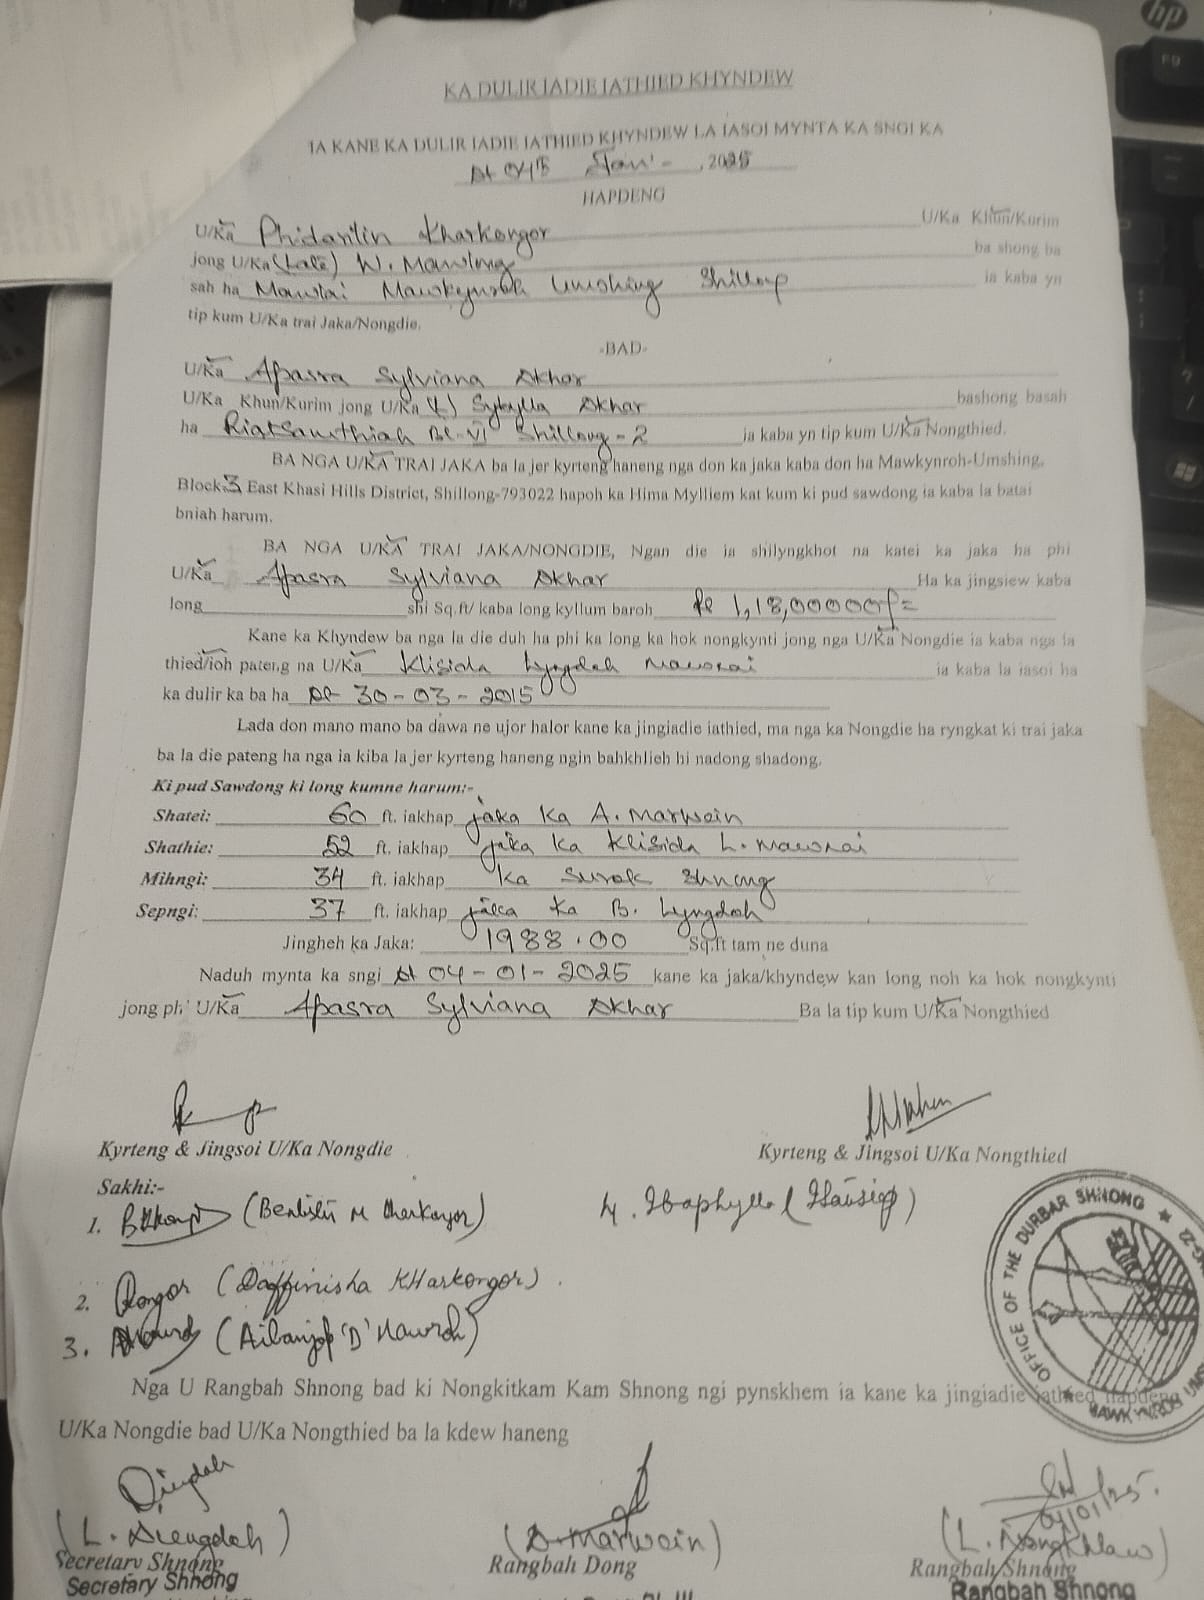 KA DULIR IADIE IATHIED KHYNDEW
IA KANE KA DULIR IADIE IATHIED KHYNDEW LA IASOI MYNTA KA SNGI KA
Dt 04th Jan' - , 2025
HAPDENG
U/Ka Phidarilin Kharkongor U/Ka Khun/Kurim
jong U/Ka (Late) W. Mawlong ba shong ba
sah ha Mawlai Mawkynroh Umshing Shillong ia kaba yn
tip kum U/Ka trai Jaka/Nongdie.
-BAD-
U/Ka Apasra Sylviana Dkhar
U/Ka Khun/Kurim jong U/Ka (L) Sybylla Dkhar bashong basah
ha Riatsamthiah Bl-VI Shillong-2 ia kaba yn tip kum U/Ka Nongthied.
BA NGA U/KA TRAI JAKA ba la jer kyrteng haneng nga don ka jaka kaba don ha Mawkynroh-Umshing,
Block-3 East Khasi Hills District, Shillong-793022 hapoh ka Hima Mylliem kat kum ki pud sawdong ia kaba la batai
bniah harum.
BA NGA U/KA TRAI JAKA/NONGDIE, Ngan die ia shilyngkhot na katei ka jaka ha phi
U/Ka Apasra Sylviana Dkhar Ha ka jingsiew kaba
long shi Sq.ft/ kaba long kyllum baroh Rs 1,18,00000/=
Kane ka Khyndew ba nga la die duh ha phi ka long ka hok nongkynti jong nga U/Ka Nongdie ia kaba nga la
thied/ioh pateng na U/Ka Klisida Lyngdoh Mawnai ia kaba la iasoi ha
ka dulir ka ba ha Dt 30-03-2015
Lada don mano mano ba dawa ne ujor halor kane ka jingiadie iathied, ma nga ka Nongdie ha ryngkat ki trai jaka
ba la die pateng ha nga ia kiba la jer kyrteng haneng ngin bahkhlieh hi nadong shadong.
Ki pud Sawdong ki long kumne harum:-
Shatei: 60 ft. iakhap jaka ka A. Marwein
Shathie: 52 ft. iakhap jaka ka Klisida L. Mawnai
Mihngi: 34 ft. iakhap ka surok shnong
Sepngi: 37 ft. iakhap jaka ka B. Lyngdoh
Jingheh ka Jaka: 1988.00 Sq.ft tam ne duna
Naduh mynta ka sngi Dt 04-01-2025 kane ka jaka/khyndew kan long noh ka hok nongkynti
jong phi U/Ka Apasra Sylviana Dkhar Ba la tip kum U/Ka Nongthied
Kyrteng & Jingsoi U/Ka Nongdie Kyrteng & Jingsoi U/Ka Nongthied
Sakhi:-
1. (M Kharkongor) 4. Ibaphylla
2. (Daffinisha KHarkongor).
3.
OFFICE OF THE DURBAR SHNONG
MAWKYNROH UMS
Nga U Rangbah Shnong bad ki Nongkitkam Kam Shnong ngi pynskhem ia kane ka jingiadie iathied hapdeng
U/Ka Nongdie bad U/Ka Nongthied ba la kdew haneng
04/01/25.
(L. Diengdoh) (D. Marwein) (L. Nongkhlaw)
Secretary Shnong Rangbah Dong Rangbah Shnong
Secretary Shnong Rangbah Shnong